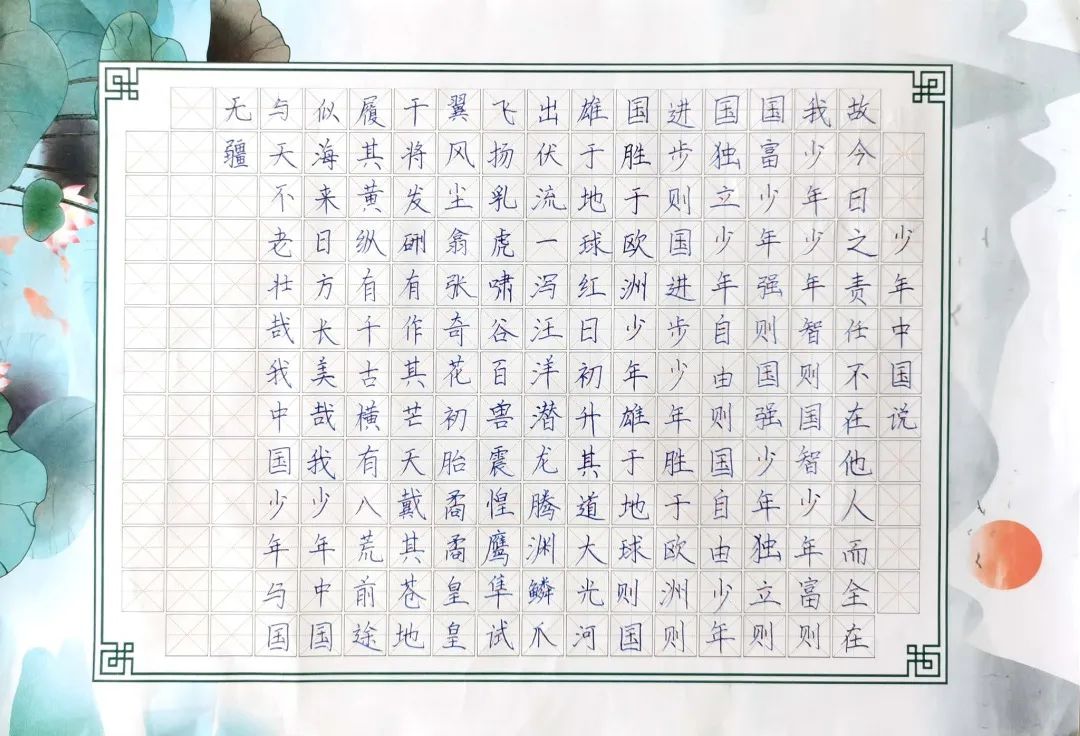 少年中国说
故今日之责任不在他人而全在
我少年少年智则国智少年富则
国富少年强则国强少年独立则
国独立少年自由则国自由少年
进步则国进步少年胜于欧洲则
国胜于欧洲少年雄于地球则国
雄于地球红日初升其道大光河
出伏流一泻汪洋潜龙腾渊鳞爪
飞扬乳虎啸谷百兽震惶鹰隼试
翼风尘翕张奇花初胎矞矞皇皇
干将发硎有作其芒天戴其苍地
履其黄纵有千古横有八荒前途
似海来日方长美哉我少年中国
与天不老壮哉我中国少年与国
无疆